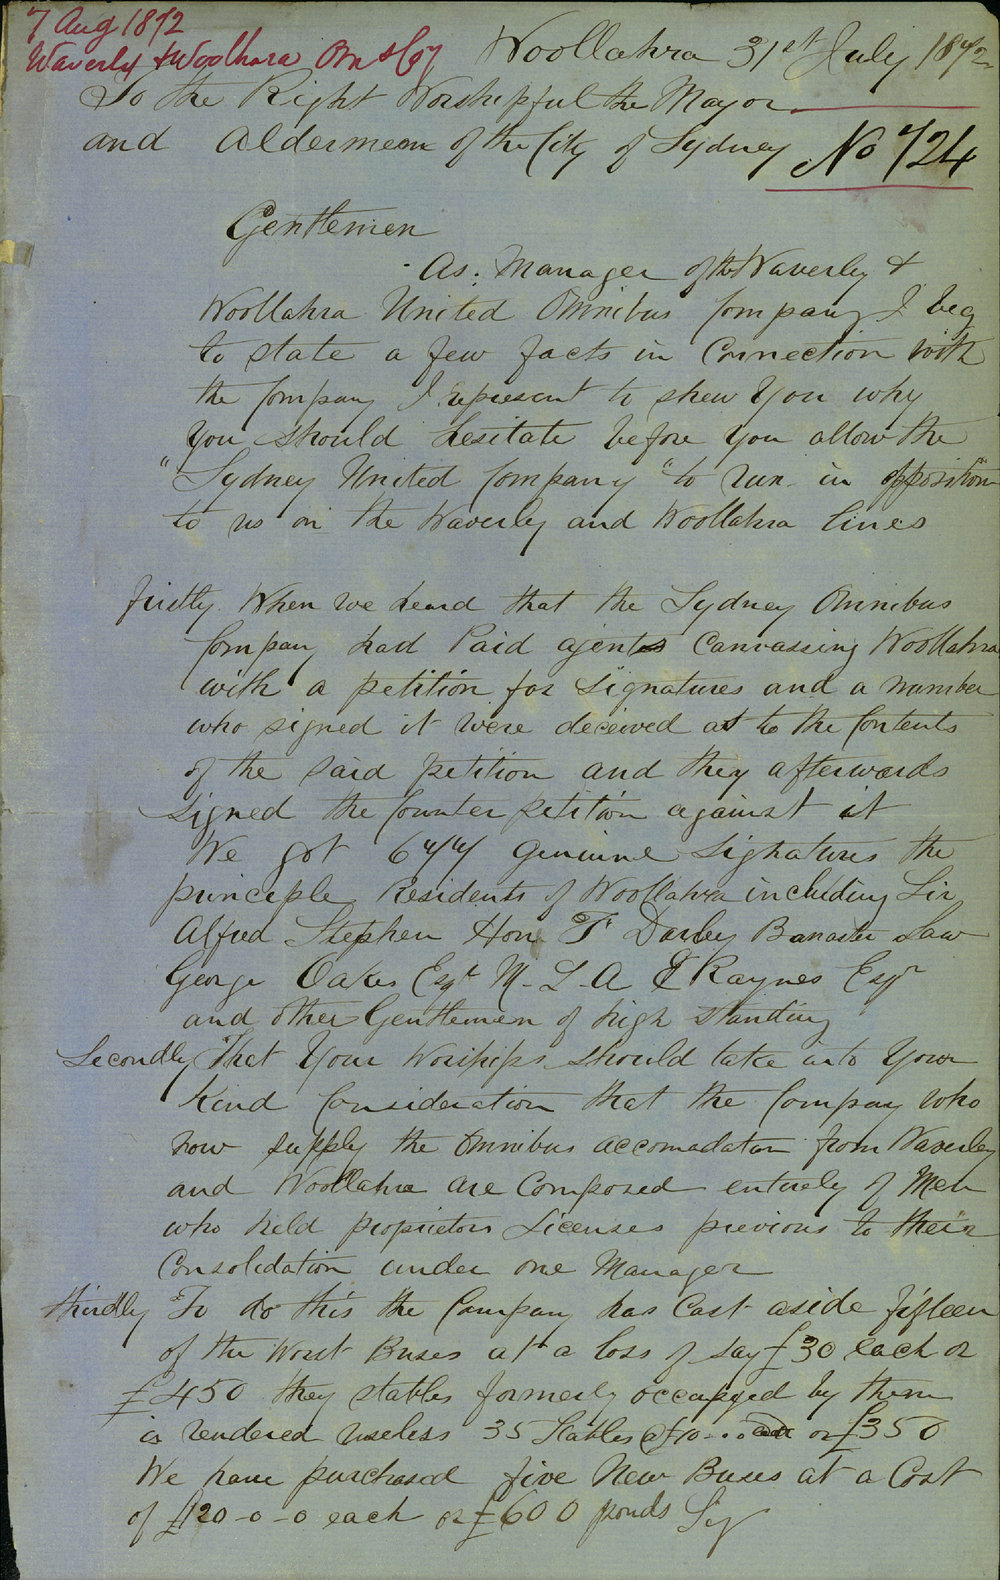 7 Aug 1872
Waverly & Woolhara Oms Coy
Woollahra 31st July 1872
To the Right Worshipful the Mayor
and Aldermean of the City of Sydney
No 724
Gentlemen
As. Manager of the Waverley &
Woollahra United Omnibus Company I beg
to state a few facts in Connection with
the Company I represent to shew You why
You should hesitate before you allow the
"Sydney United Company" to run in opposition
to us on the Waverley and Woollahra lines
firstly. When we heard that the Sydney Omnibus
Company had Paid agents Canvassing Woollahra
with a petition for Signatures and a number
who signed it were deceived as to the Contents
of the said petition and they afterwards
signed the Counter petition against it
We got 677 genuine Signatures the
principle Residents of Woollahra including Sir
Alfred Stephen Hon F Darley Barraster Law
George Oakes Esqr M. L. A E Raynes Esqr
and other Gentlemen of high standing
Secondly That Your Worships should take into Your
Kind Consideration that the Company who
now supply the Omnibus accomadaton from Waverley
and Woollahra are Composed entirely of Men
who held proprietors Licenses previous to their
Consolidation under one Manager
thirdly To do this the Company has Cast aside fifteen
of the Worst Buses at a loss of say £30 each or
£450 they stables formerly occupyed by them
is rendered useless 35 Stables @ £10 . . each or £350
We have purchased five New Buses at a Cost
of £120-0-0 each or £600 ponds Sig